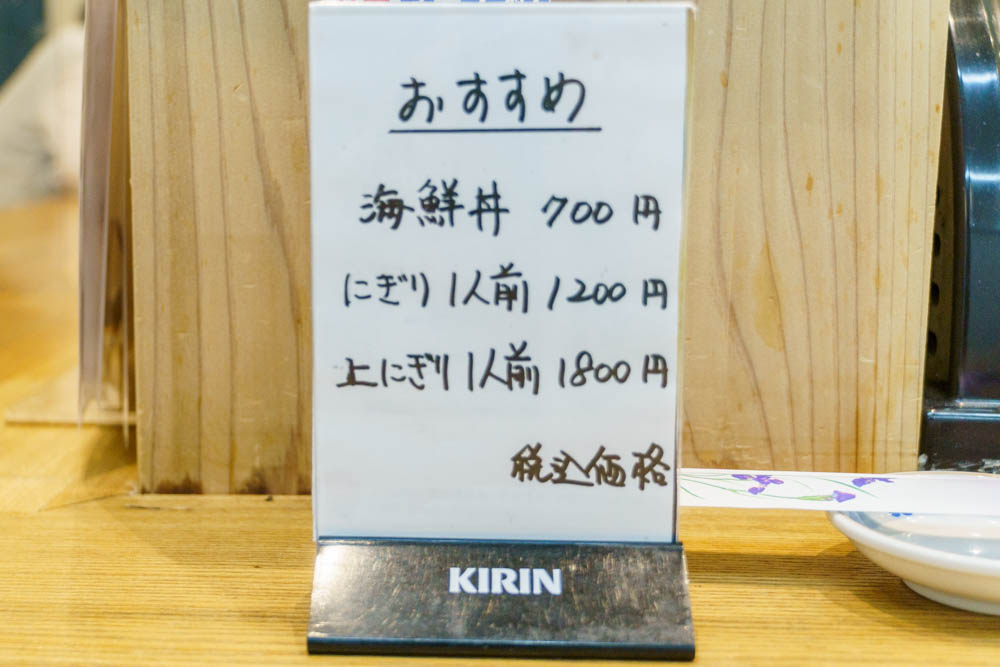 おすすめ
海鮮丼 700円
にぎり 1人前 1200円
上にぎり 1人前 1800円
税込価格
KIRIN